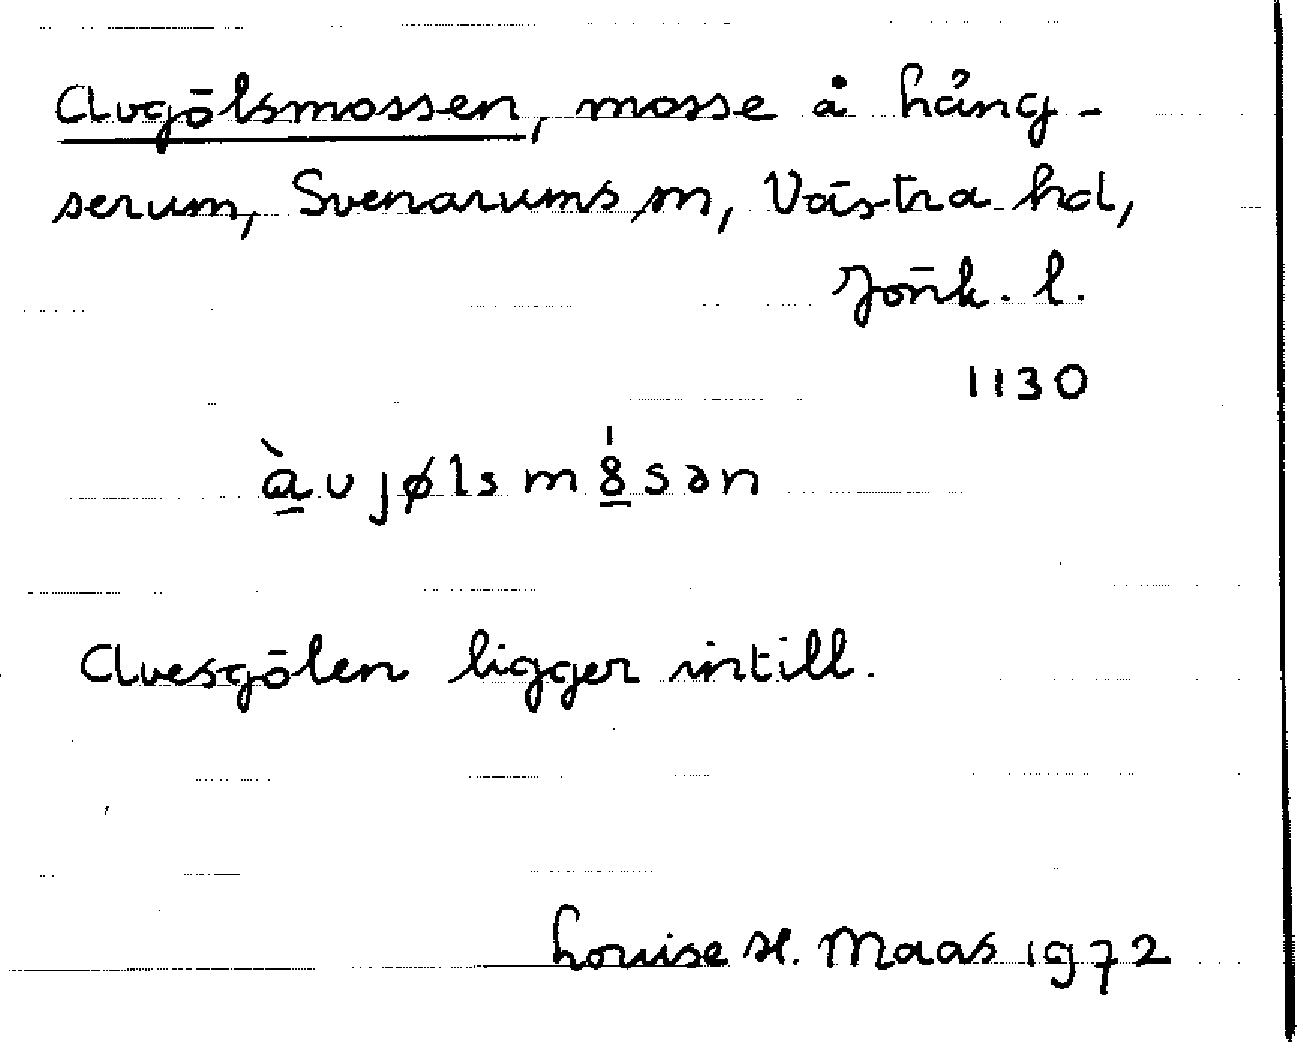 Avgölsmossen, mosse å Lång-
serum, Svenarums sn, Västra hd,
Jönk. l.
1130
àvjølsm8sən
Avesgölen ligger intill.
Louise H. Maas 1972